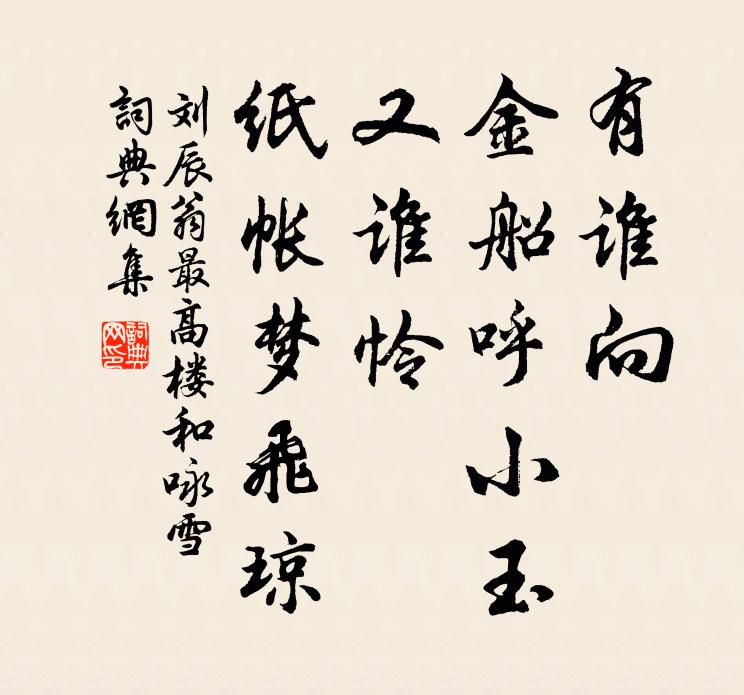 有谁向
金船呼小玉
又谁怜
纸帐梦飞琼
刘辰翁最高楼和咏雪
詞典網集
詞典
网印